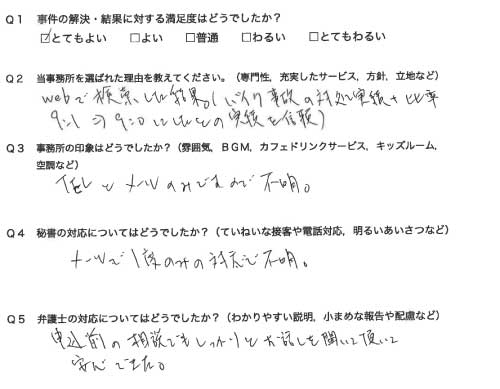 Q1 事件の解決・結果に対する満足度はどうでしたか？
☑とてもよい □よい □普通 □わるい □とてもわるい
Q2 当事務所を選ばれた理由を教えてください。（専門性，充実したサービス，方針，立地など）
webで検索した結果。(バイク事故の対処実績+比率
9:1⇒9:0にしたとの実績を信頼)
Q3 事務所の印象はどうでしたか？（雰囲気，ＢＧＭ，カフェドリンクサービス，キッズルーム，
空調など）
TELとメールのみですので不明。
Q4 秘書の対応についてはどうでしたか？（ていねいな接客や電話対応，明るいあいさつなど）
メールで1度のみの対応で不明。
Q5 弁護士の対応についてはどうでしたか？（わかりやすい説明，小まめな報告や配慮など）
申込前の相談でもしっかりとお話しを聞いて頂いて
安心できた。